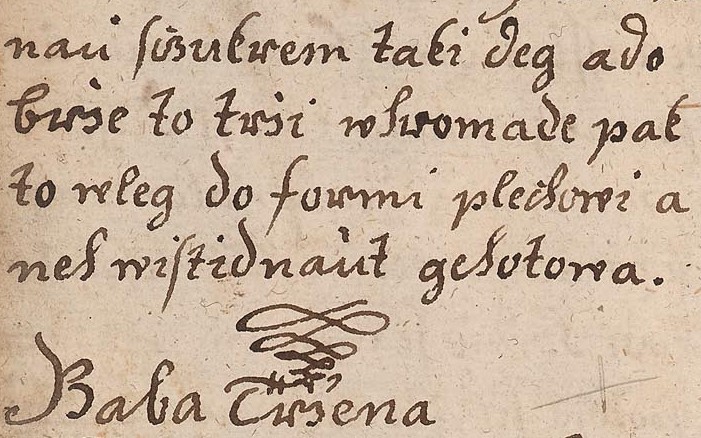 nau s ızukrem taki deg a do
brże to trżi w hromade pak
to wleg do formi plechowi a
neh wistidnaut ge hotowa.
Baba Trżena